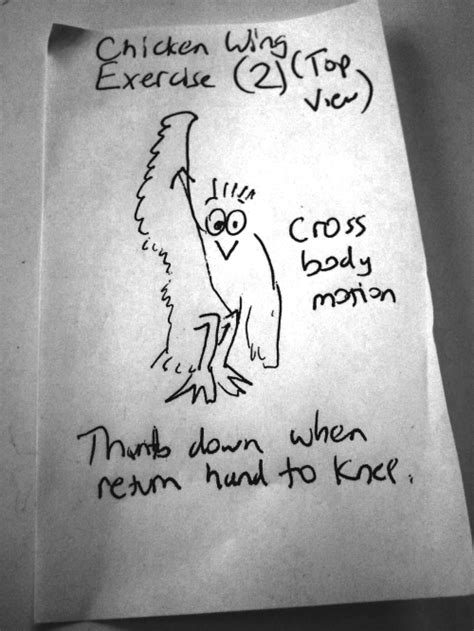 Chicken Wing
Exercise (2) (Top
View)
Cross
body
motion
Thumb down when
return hand to knee.